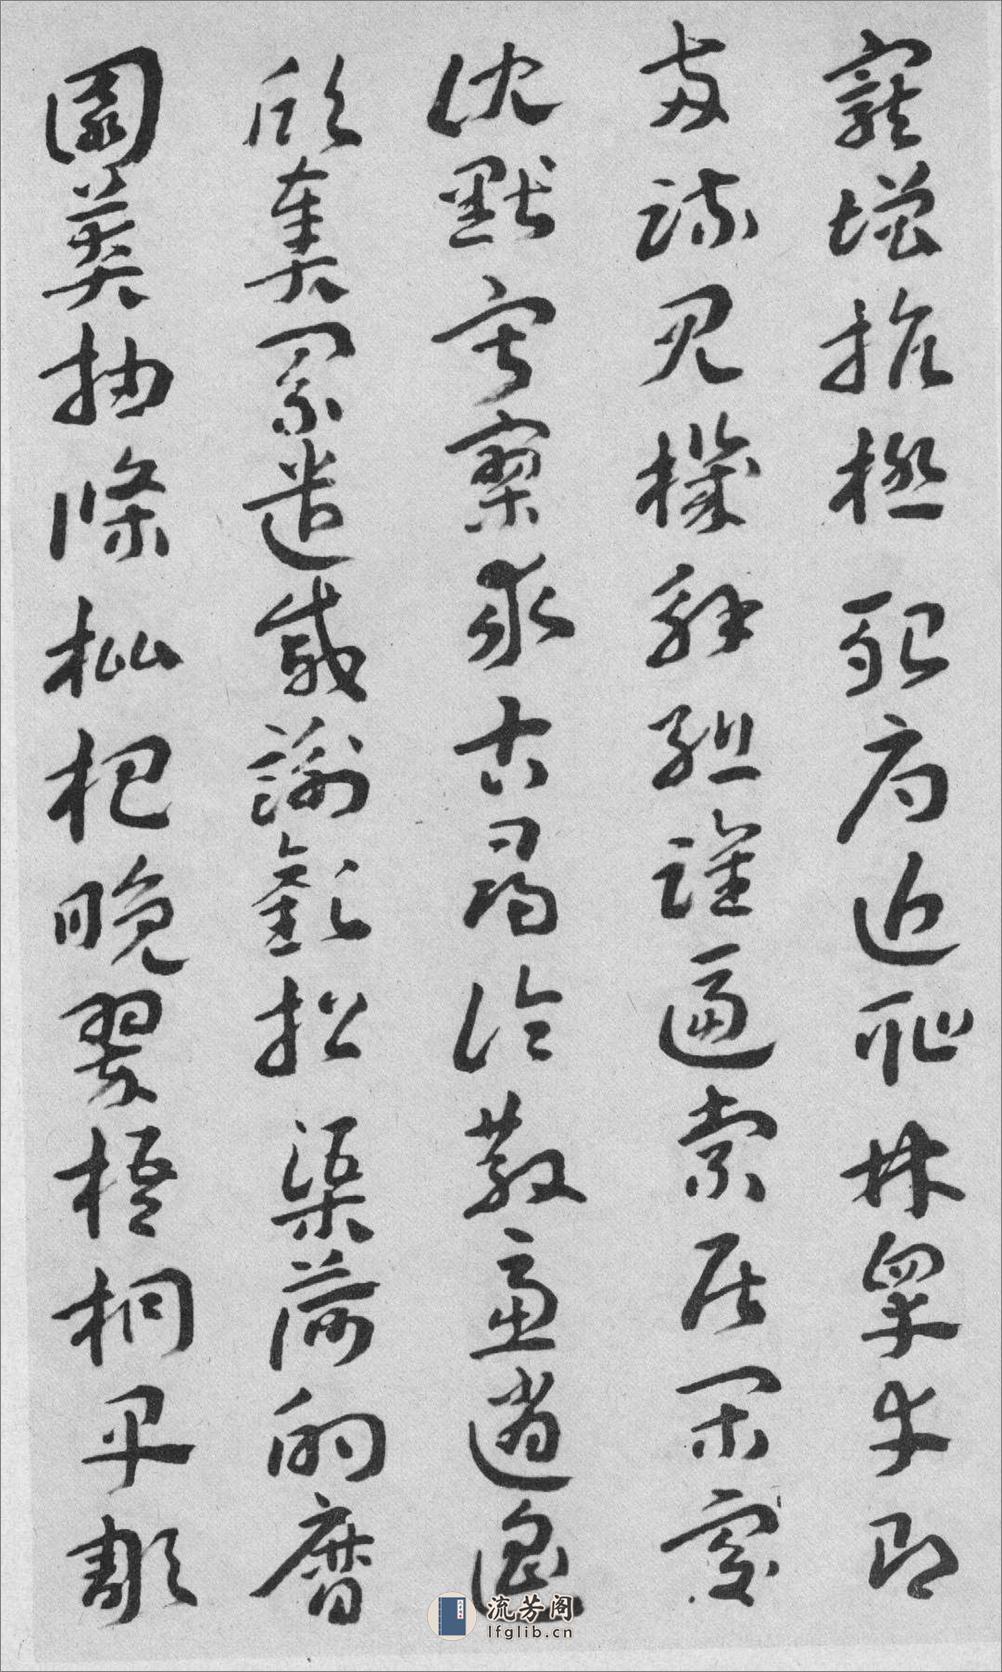 寵增抗極殆辱近恥林皋幸即
兩疏見機解組誰逼索居閑處
沈默寂寥求古尋論散慮逍遙
欣奏累遣慼謝歡招渠荷的歷
園莽抽條枇杷晚翠梧桐早彫
流芳阁
lfglib.cn